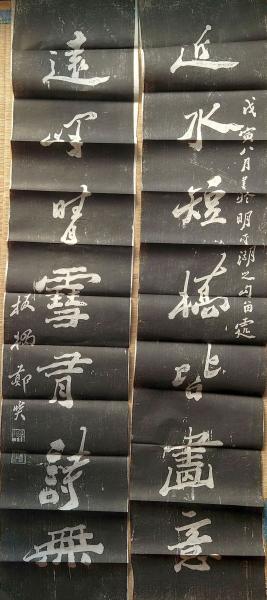 近水短橋皆畫意
戊寅八月書於明聖湖之
遠峰晴雪有詩無
板橋鄭燮